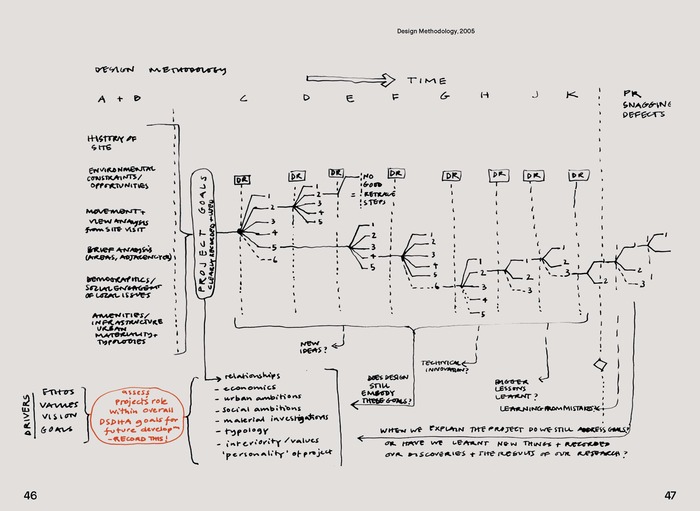 Design Methodology, 2005
DESIGN METHODOLOGY
TIME
A + B C D E F G H J K
PR
SNAGGING
DEFECTS
HISTORY OF
SITE
ENVIRONMENTAL
CONSTRAINTS/
OPPORTUNITIES
MOVEMENT +
VIEW ANALYSIS
from SITE VISIT
BRIEF ANALYSIS
(AREAS, ADJACENCIES)
DEMOGRAPHICS/
SOCIAL ENGAGEMENT
OF LOCAL ISSUES
AMENITIES/
INFRASTRUCTURE
URBAN
MATERIALITY +
TYPOLOGIES
PROJECT GOALS
CLEARLY RECORDED
DR DR DR DR DR DR DR DR
1
2
3
4
5
6
1
2
3
4
5
1
2
= NO
GOOD
RETRACE
STEPS
1
2
3
4
5
1
2
3
4
5
6
1
2
3
4
5
1
2
3
1
2
3
1
2
1
2
3
1
2
NEW
IDEAS?
DOES DESIGN
STILL
EMBODY
THESE GOALS?
TECHNICAL
INNOVATION?
BIGGER
LESSONS
LEARNT?
LEARNING FROM MISTAKES
WHEN WE EXPLAIN THE PROJECT DO WE STILL ADDRESS GOALS?
OR HAVE WE LEARNT NEW THINGS + RECORDED
OUR DISCOVERIES + THE RESULTS OF OUR RESEARCH?
DRIVERS
ETHOS
VALUES
VISION
GOALS
assess
project's role
within overall
DSDHA goals for
future develop-
- RECORD THIS!
relationships
- economics
- urban ambitions
- social ambitions
- material investigations
- typology
- interiority / values
'personality' of project
46
47